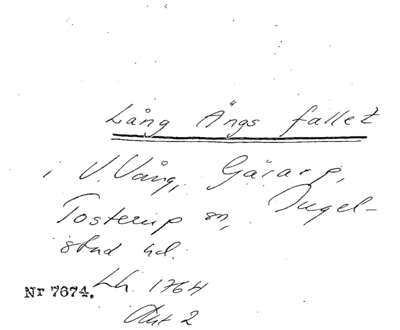 Lång Ängs fallet
i V. Vång, Gärarp,
Tosterup sn, Ingel-
stad hd.
Nr 7674. Lh. 1764
Akt 2